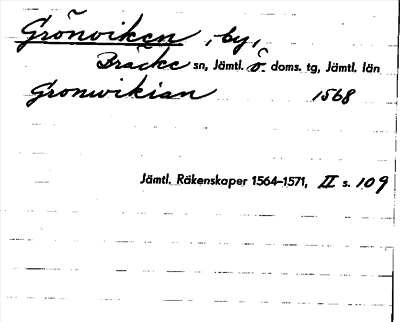 Grönviken, by,
Bräcke sn, Jämtl. ö. doms. tg, Jämtl. län
Gronwikian 1568
Jämtl. Räkenskaper 1564–1571, II s. 109